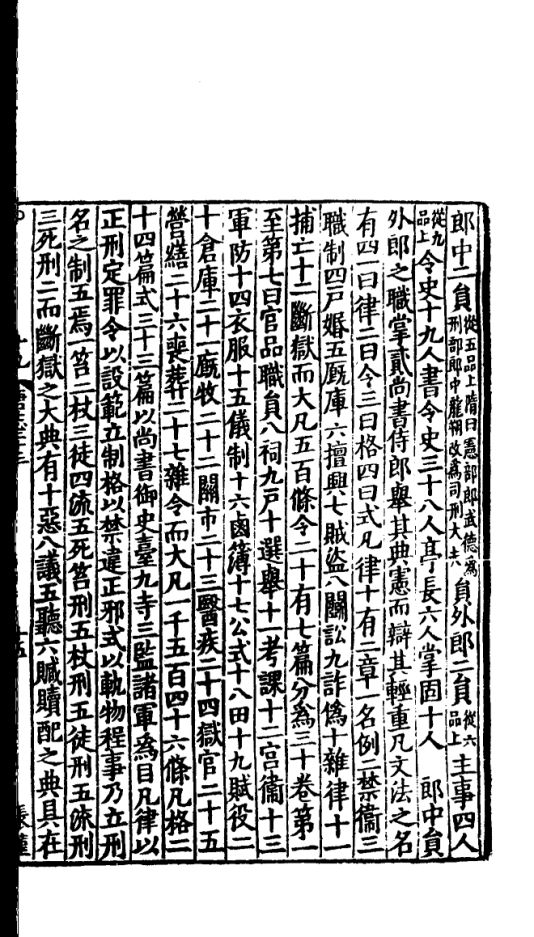 郎中二員從五品上隋曰憲部郎武德爲刑部郎中龍朔改爲司刑大夫員外郎二員從六品上主事四人
從九品上令史十九人書令史三十八人亭長六人掌固十人 郎中員
外郎之職掌貳尚書侍郎舉其典憲而辯其輕重凡文法之名
有四一曰律二曰令三曰格四曰式凡律十有二章一名例二禁衞三
職制四戸婚五厩庫六擅興七賊盜八鬬訟九詐僞十雜律十一
捕亡十二斷獄而大凡五百條令二十有七篇分爲三十卷第一
至第七曰官品職員八祠九戸十選舉十一考課十二宫衞十三
軍防十四衣服十五儀制十六鹵簿十七公式十八田十九賦役二
十倉庫二十一厩牧二十二關市二十三醫疾二十四獄官二十五
營繕二十六喪葬二十七雜令而大凡一千五百四十六條凡格二
十四篇式三十三篇以尚書御史臺九寺三監諸軍爲目凡律以
正刑定罪令以設範立制格以禁違正邪式以軌物程事乃立刑
名之制五焉一笞二杖三徒四流五死笞刑五杖刑五徒刑五流刑
三死刑二而斷獄之大典有十惡八議五聽六贓贖配之典具在